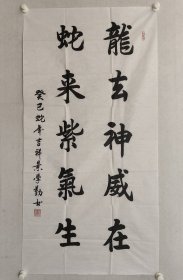 龍去神威在
蛇来紫氣生
癸巳蛇年吉祥景學勤书